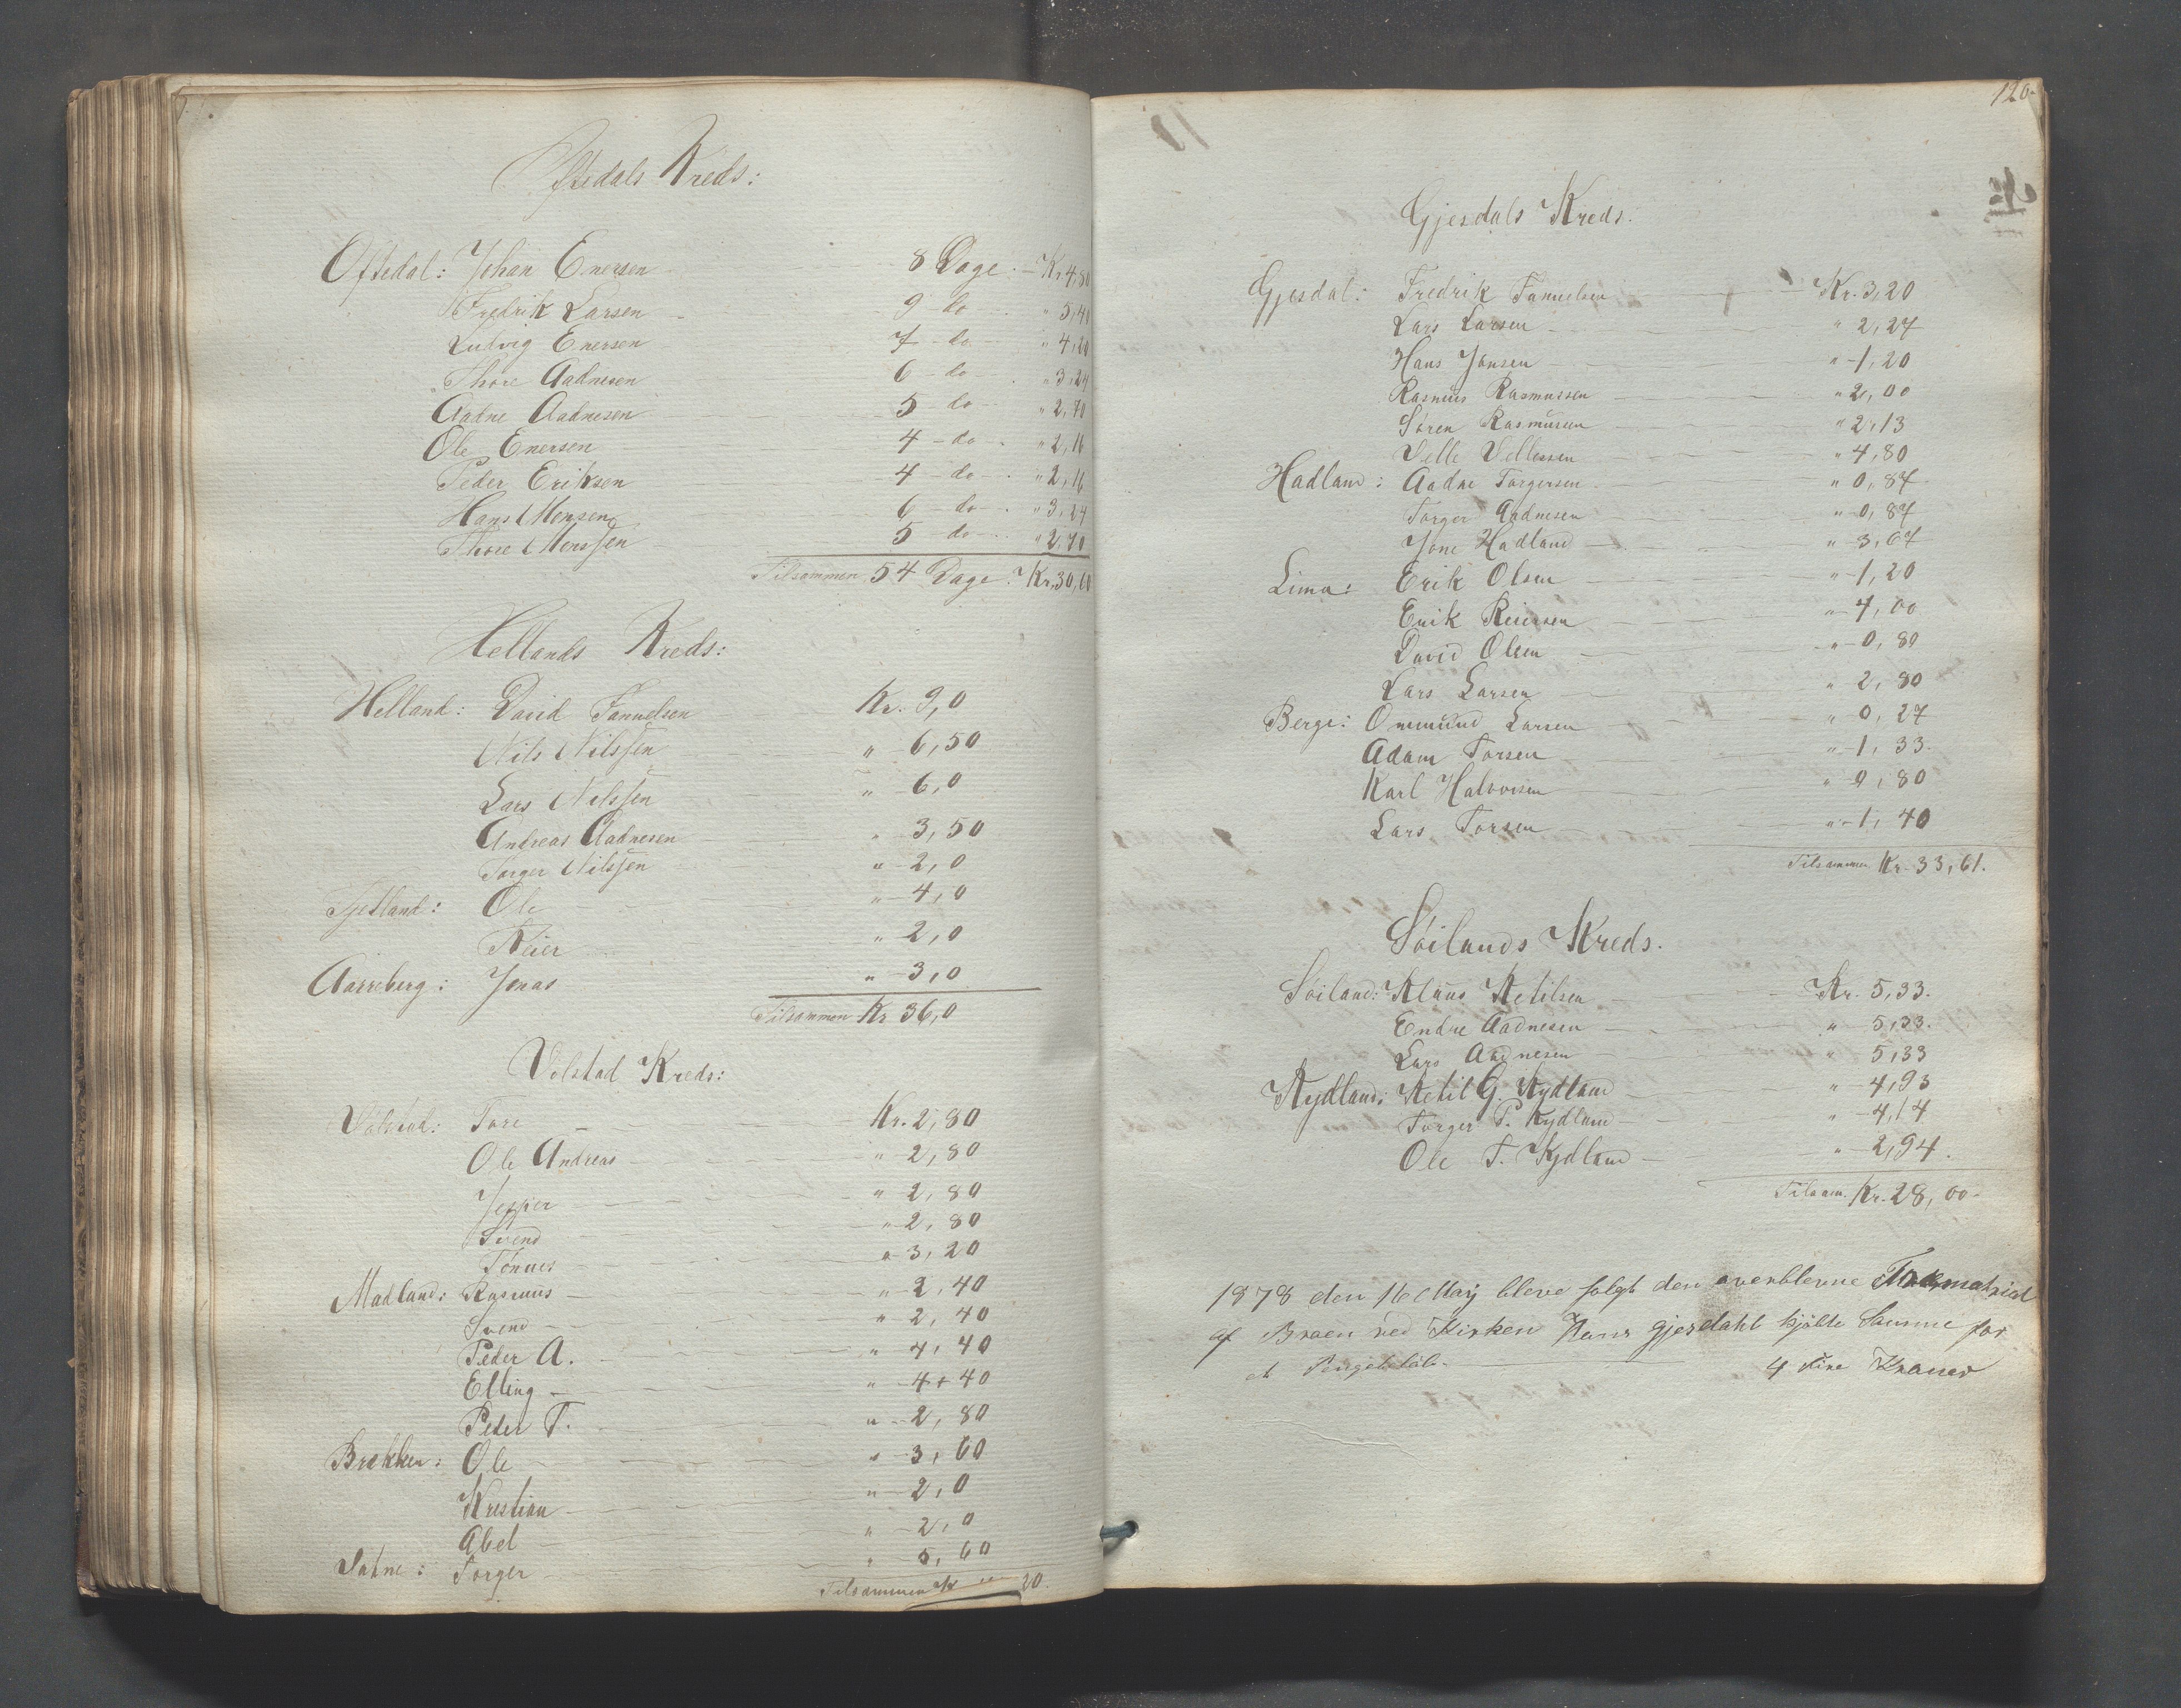 Oftedals Kreds:
Oftedal: Johan Enersen 8 Dage. Kr. 4,80
Fredrik Larsen 9 do " 5,40
Ludvig Enersen 7 do " 4,20
Thore Aadnesen 6 do " 3,24
Aadne Aadnesen 5 do " 2,70
Ole Enersen 4 do " 2,16
Peder Eriksen 4 do " 2,16
Hans Monsen 6 do " 3,24
Thore Monssen 5 do " 2,70
Tilsammen 54 Dage. Kr. 30,60
Hellands Kreds:
Helland: David Samuelsen Kr. 9,0
Nils Nilssen " 6,50
Lars Nilssen " 6,0
Andreas Aadnesen " 3,50
Torger Nilssen " 2,0
Tjetland: Ole " 4,0
Reier " 2,0
Aarreberg: Jonas " 3,0
Tilsammen Kr 36,0
Volstad Kreds:
Volstad: Tore Kr. 2,80
Ole Andreas " 2,80
Jesper " 2,80
Svend " 2,80
Tønnes " 3,20
Madland: Rasmus " 2,40
Svend " 2,40
Peder A. " 4,40
Elling " 4,40
Peder T. " 2,80
Brekken: Ole " 3,60
Kristian " 2,0
Abel " 2,0
Torger " 5,60
Tilsammen
120.
Gjesdals Kreds.
Gjesdal: Fredrik Samuelsen Kr. 3,20
Lars Larsen " 2,27
Hans Jonsen " 1,20
Rasmus Rasmussen " 2,00
Søren Rasmusen " 2,13
Velle Vellessen " 4,80
Hadland: Aadne Torgersen " 0,87
Torger Aadnesen " 0,87
Jone Hadland " 3,67
Lima: Erik Olsen " 1,20
Erik Reiersen " 4,00
David Olsen " 0,80
Lars Larsen " 2,80
Berge: Ommund Larsen " 0,27
Adam Torsen " 1,33.
Karl Halvorsen " 0,80
Lars Torsen " 1,40
Tilsammen Kr. 33,61.
Søilands Kreds.
Søiland: Klaus Ketilsen Kr. 5,33.
Endre Aadnesen " 5,33.
Lars Aadnesen " 5,33
Kydland: Ketil G. Kydland " 4,93
Torger T. Kydland " 4,14
Ole T. Kydland " 2,94.
Tilsam. Kr. 28,00.
1878 den 16 Maij bleve solgt den overblevne
af Broen ved Kirken Hans Gjesdahl kjøbte Samme for
et 4 fire Kroner